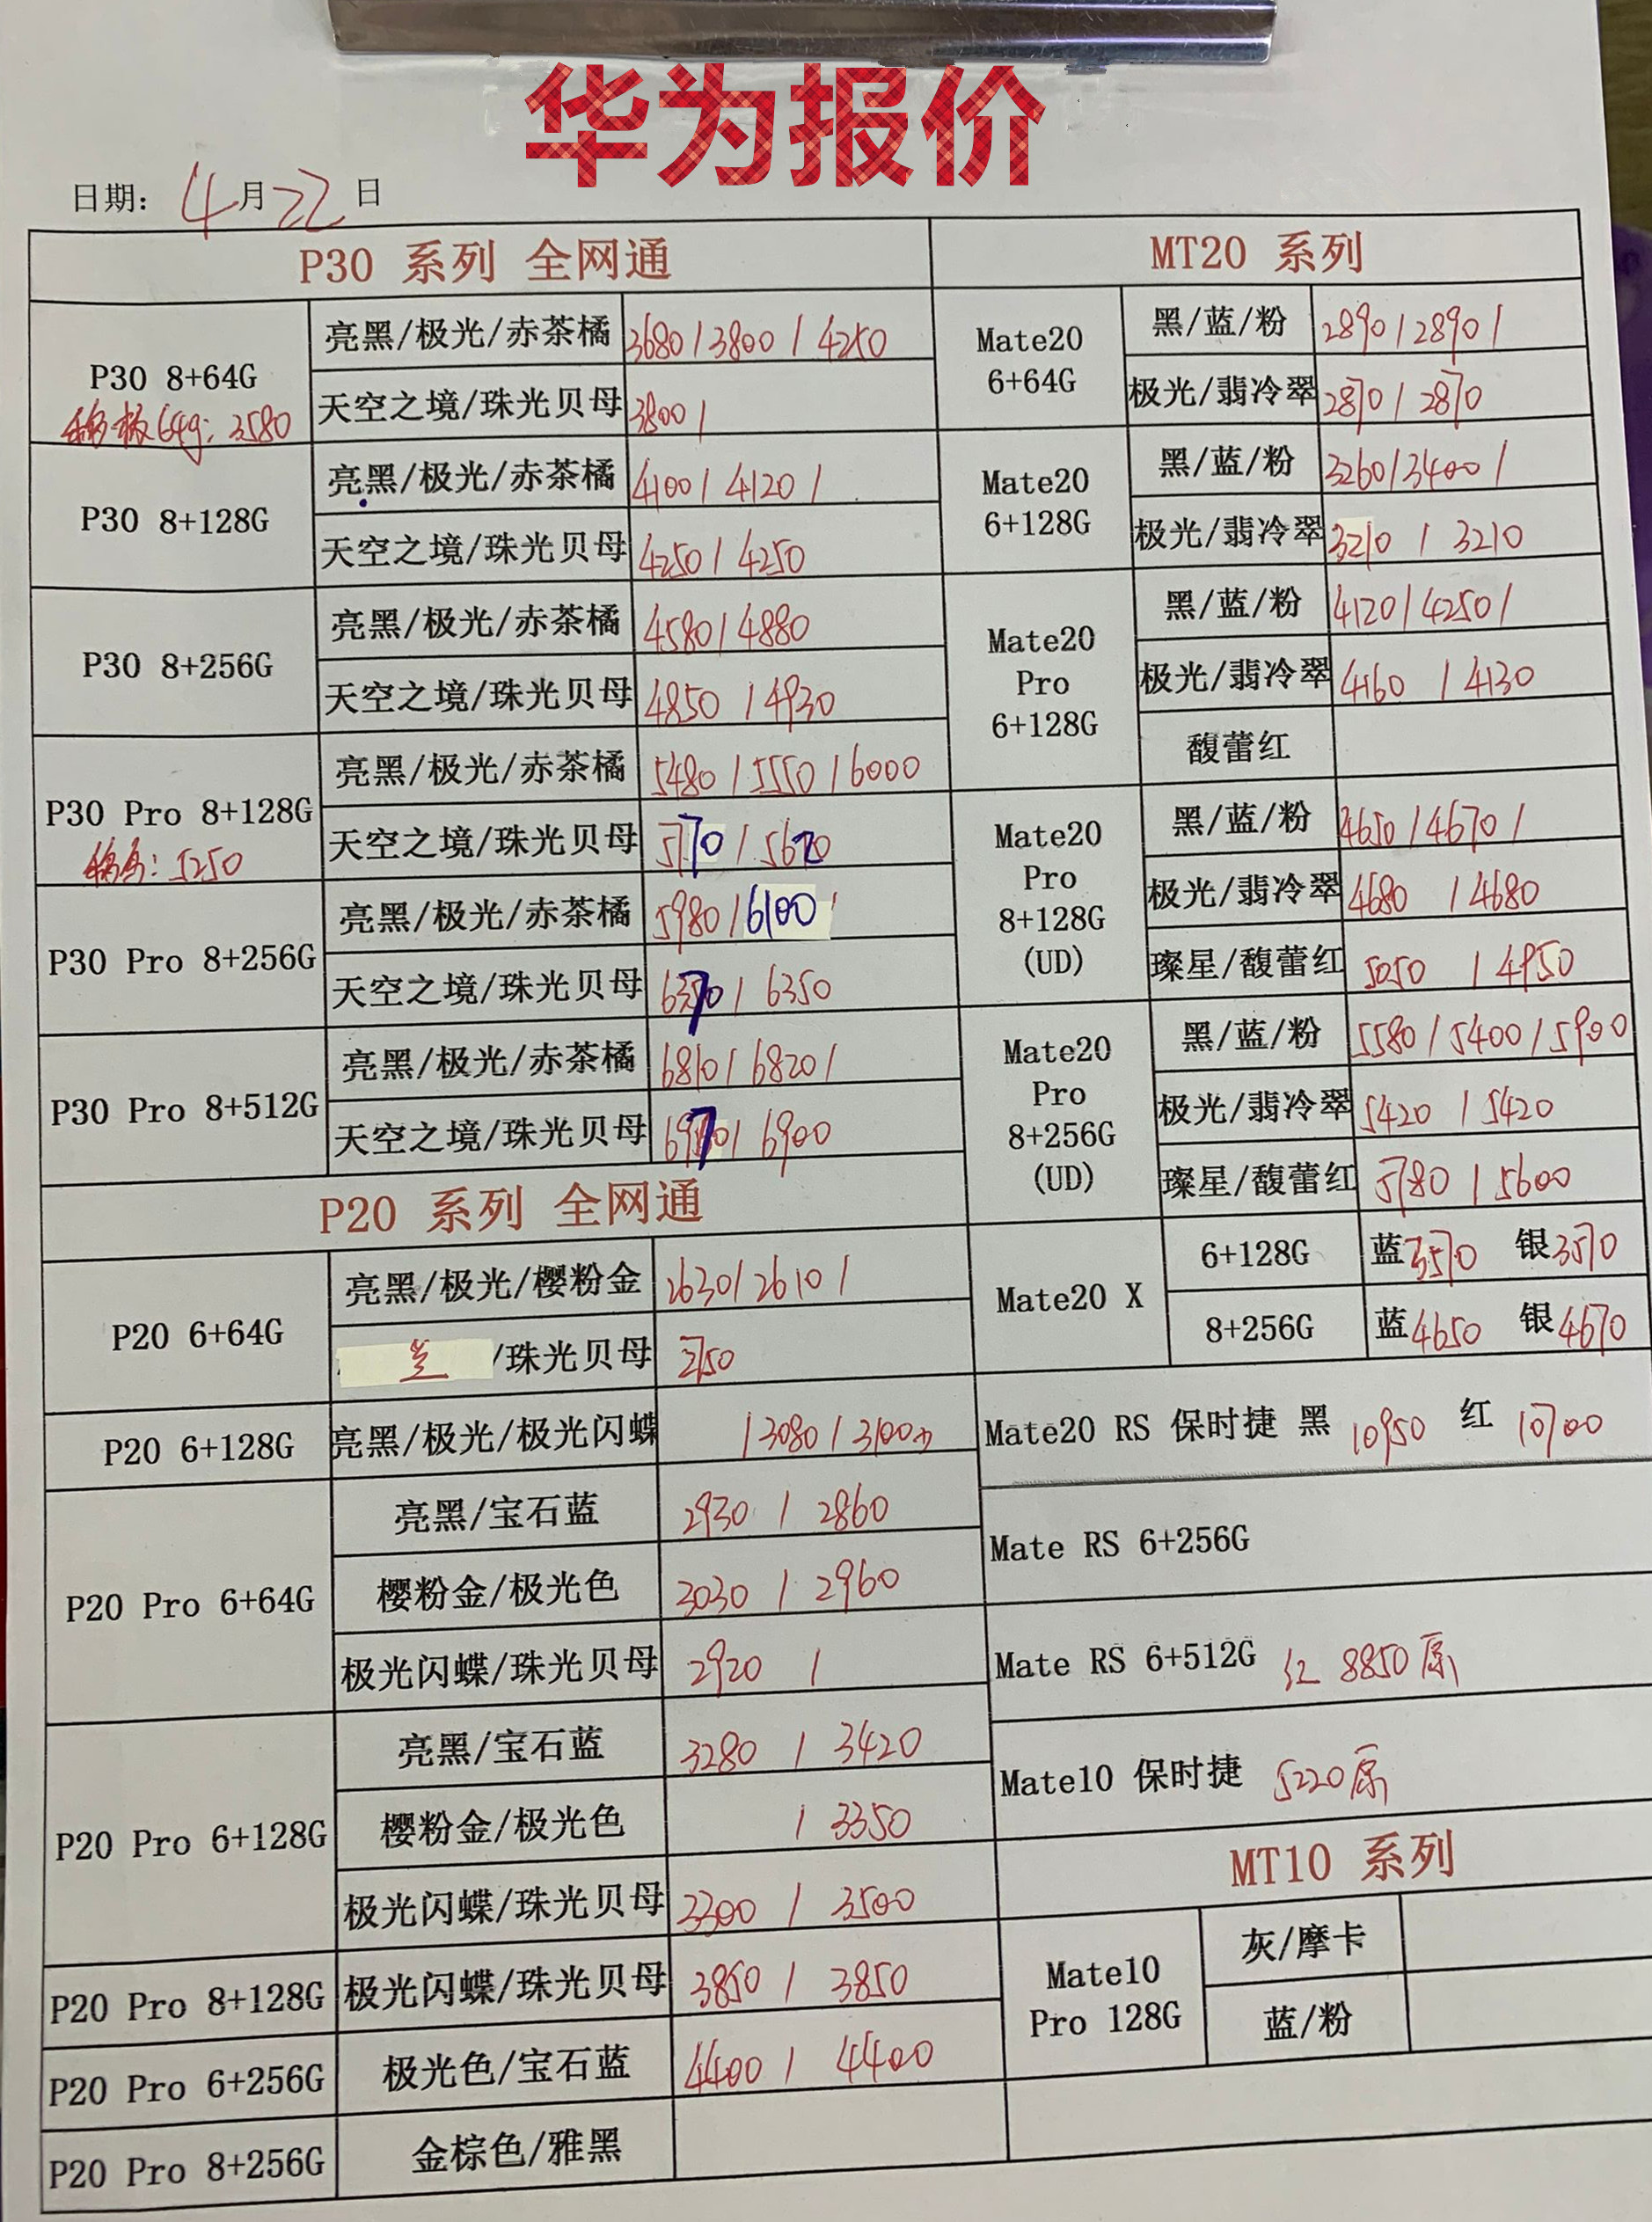 华为报价
日期: 4月22日
P30 系列 全网通
P30 8+64G
移板64g: 3580
亮黑/极光/赤茶橘 3680/3800/4250
天空之境/珠光贝母 3800/
P30 8+128G
亮黑/极光/赤茶橘 4100/4120/
天空之境/珠光贝母 4250/4250
P30 8+256G
亮黑/极光/赤茶橘 4580/4880
天空之境/珠光贝母 4850/4930
P30 Pro 8+128G
5250
亮黑/极光/赤茶橘 5480/5550/6000
天空之境/珠光贝母 5770/5620
P30 Pro 8+256G
亮黑/极光/赤茶橘 5980/6100/
天空之境/珠光贝母 6370/6350
P30 Pro 8+512G
亮黑/极光/赤茶橘 6810/6820/
天空之境/珠光贝母 6970/6900
P20 系列 全网通
P20 6+64G
亮黑/极光/樱粉金 2630/2610/
兰/珠光贝母 2750
P20 6+128G
亮黑/极光/极光闪蝶 /3080/3100
P20 Pro 6+64G
亮黑/宝石蓝 2930/2860
樱粉金/极光色 3030/2960
极光闪蝶/珠光贝母 2920/
P20 Pro 6+128G
亮黑/宝石蓝 3280/3420
樱粉金/极光色 /3350
极光闪蝶/珠光贝母 3300/3500
P20 Pro 8+128G
极光闪蝶/珠光贝母 3850/3850
P20 Pro 6+256G
极光色/宝石蓝 4400/4400
P20 Pro 8+256G
金棕色/雅黑
MT20 系列
Mate20
6+64G
黑/蓝/粉 2890/2890/
极光/翡冷翠 2870/2870
Mate20
6+128G
黑/蓝/粉 3260/3400/
极光/翡冷翠 3210/3210
Mate20
Pro
6+128G
黑/蓝/粉 4120/4250/
极光/翡冷翠 4160/4130
馥蕾红
Mate20
Pro
8+128G
(UD)
黑/蓝/粉 4650/4670/
极光/翡冷翠 4680/4680
璨星/馥蕾红 5050/4950
Mate20
Pro
8+256G
(UD)
黑/蓝/粉 5580/5400/5900
极光/翡冷翠 5420/5420
璨星/馥蕾红 5780/5600
Mate20 X
6+128G 蓝3570 银3570
8+256G 蓝4650 银4670
Mate20 RS 保时捷 黑 10950 红 10700
Mate RS 6+256G
Mate RS 6+512G 红 8850原
Mate10 保时捷 5220原
MT10 系列
Mate10
Pro 128G
灰/摩卡
蓝/粉